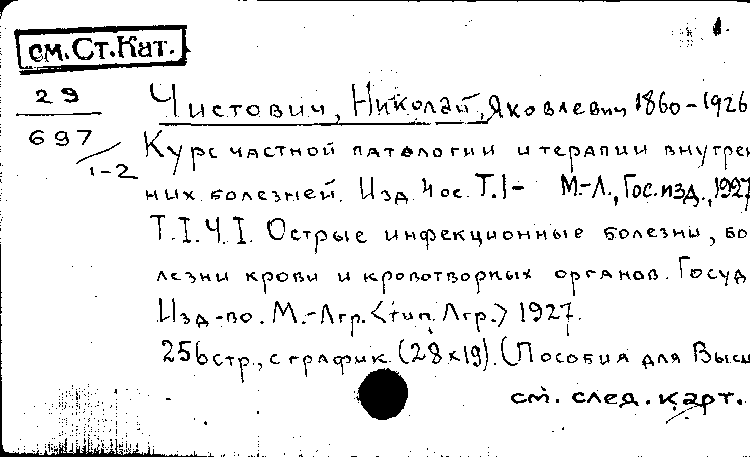 1.
см. Ст. Кат.
29
697
1-2
Чистович, Николай, Яковлевич 1860-1926
Курс частной патологии и терапии внутрен
них болезней. Изд. 4ое. Т. I- М.-Л., Гос. изд., 1927
Т. I. Ч. I. Острые инфекционные болезни, бо
лезни крови и кроветворных органов. Госуд
Изд-во. М.-Лгр. <тип. Лгр.> 1927.
256 стр., с график. (28x19). (Пособия для Высш
см. след. карт.